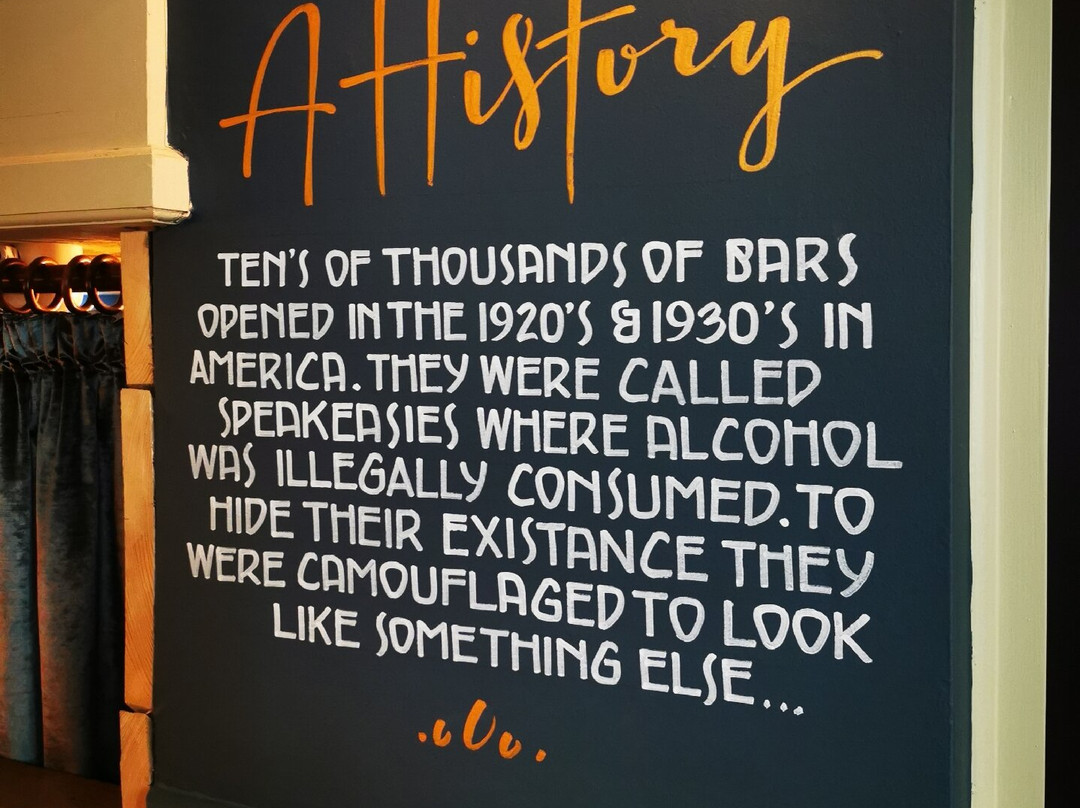 A History
TEN'S OF THOUSANDS OF BARS
OPENED IN THE 1920'S & 1930'S IN
AMERICA. THEY WERE CALLED
SPEAKEASIES WHERE ALCOHOL
WAS ILLEGALLY CONSUMED. TO
HIDE THEIR EXISTANCE THEY
WERE CAMOUFLAGED TO LOOK
LIKE SOMETHING ELSE...